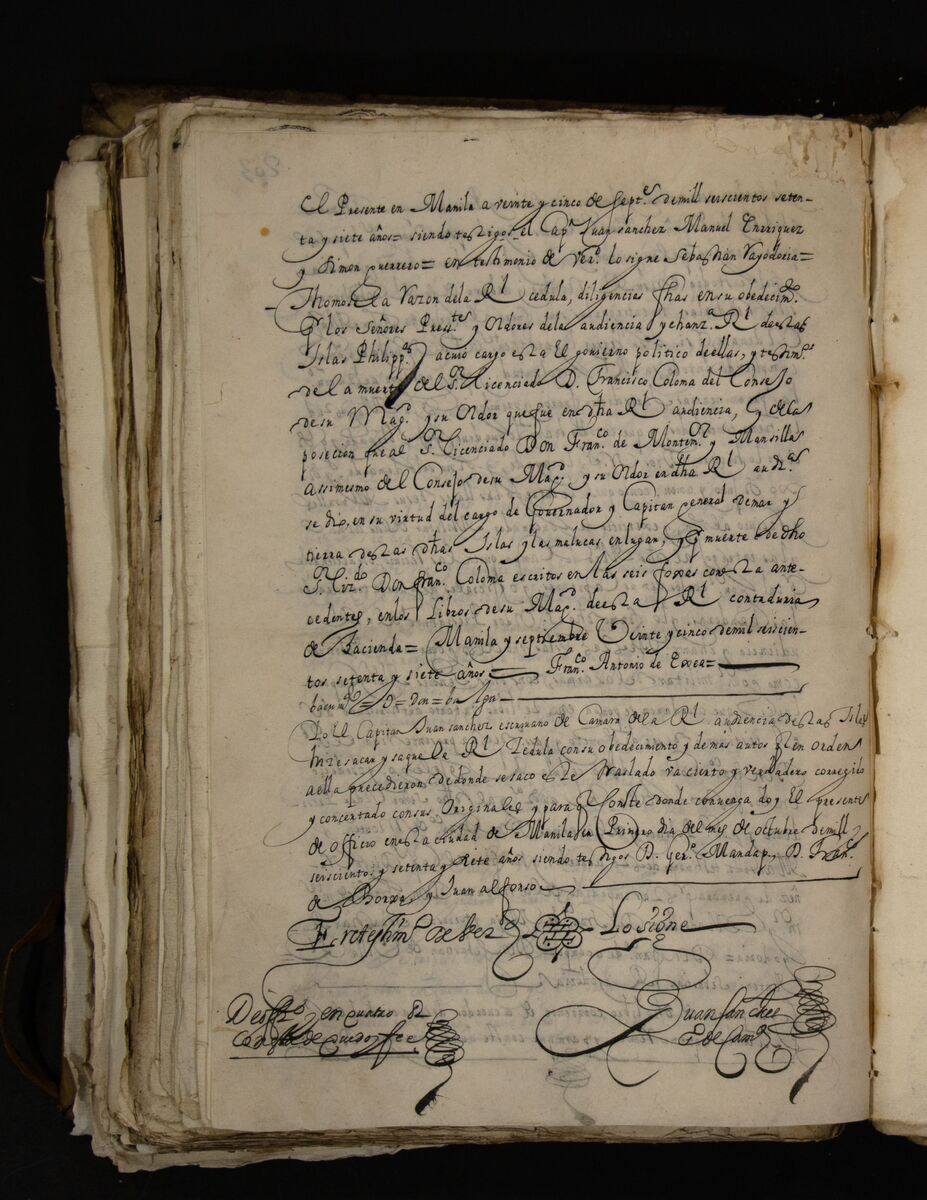 el Presente en Manila a veinte y cinco de Sept.e de mill seiscientos seten-
ta y siete años= siendo testigos el Cap.n Juan sanchez Manuel Enrriquez
y Simon guerrero= en testimonio de Ver.d lo signe Sebastian
Thomose la Razon de la R.l cedula, diligencias fhas en su obedecim.to
los Señores Pres.tes y Oidores de la audiencia y chanz.a R.l destas
Islas Philipp.s a cuio cargo esta El govierno politico de ellas, y testim.o
de la muerte del S.or Licenciado D. Francisco Coloma del Consejo
de su Mag.d y su Oidor que fue en dha R.l audiencia, y de la
posecion que al S.or Licenciado Don Fran.co de Montem.or y Mansilla
assimesmo del Consejo de su Mag.d y su Oidor en dha R.l aud.a
se dio, en su virtud del cargo de Governador y Capitan general de mar y
tierra de estas dhas Islas y las malucas en lugar, y por muerte de dho
S.or Liz.do Don fran.co Coloma escritos en las seis foxas con esta ante-
cedentes, en los Libros de su Mag.d de esta R.l contaduria
de Hacienda= Manila y septiembre Veinte y cinco de mil seiscien-
tos setenta y siete años= Fran.co Antonio de Exea=
Yo El Capitan Juan sanchez escriuano de Camara de la R.l audiencia de estas Islas
hize sacar y saque la R.l Zedula con su obedecimiento y demas autos q en orden
a ella precedieron de donde se saco este traslado va cierto y verdadero corregido
y concertado con sus Originales y para q conste donde convenga doy El presente
de officio en esta ciudad de Manila en Primero dia del mes de octubre de mill
seiscientos y setenta y siete años siendo testigos D. Ger.mo Mandap., D. Fran.co
de Borxa, y Juan alfonso
En testim.o de Verd.d Lo signe
en quatro
Juan Sanchez
E. de Cam.a